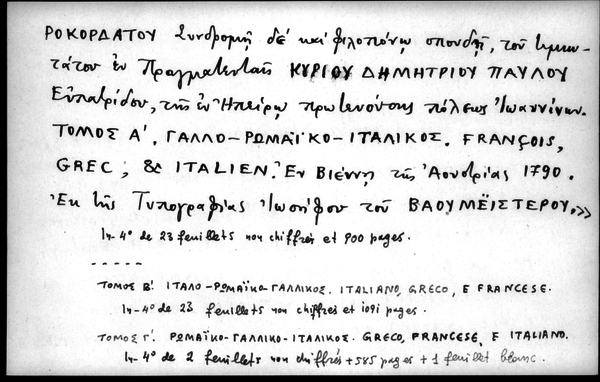 ΡΟΚΟΡΔΑΤΟΥ Συνδρομῇ δέ καί φιλοπόνῳ σπουδῇ, τοῦ τιμιω-
τάτου ἐν Πραγματευταῖς ΚΥΡΙΟΥ ΔΗΜΗΤΡΙΟΥ ΠΑΥΛΟΥ
Εὐπατρίδου, τῆς ἐν Ἠπείρῳ πρωτευούσης πόλεως Ἰωαννίνων.
ΤΟΜΟΣ Α'. ΓΑΛΛΟ-ΡΩΜΑΪΚΟ-ΙΤΑΛΙΚΟΣ. FRANÇOIS,
GREC, & ITALIEN. Ἐν ΒΙέννῃ τῆς Ἀουστρίας 1790.
Ἐκ τῆς Τυπογραφίας Ἰωσήφου τοῦ ΒΑΟΥΜΕΪΣΤΕΡΟΥ.»
In-4° de 23 feuillets non chiffrés et 900 pages.
-----
ΤΟΜΟΣ Β'. ΙΤΑΛΟ-ΡΩΜΑΪΚΟ-ΓΑΛΛΙΚΟΣ. ITALIANO, GRECO, E FRANCESE.
In-4° de 23 feuillets non chiffrés et 1091 pages.
ΤΟΜΟΣ Γ'. ΡΩΜΑΪΚΟ-ΓΑΛΛΙΚΟ-ΙΤΑΛΙΚΟΣ. GRECO, FRANCESE, E ITALIANO.
In-4° de 2 feuillets non chiffrés +585 pages +1 feuillet blanc.